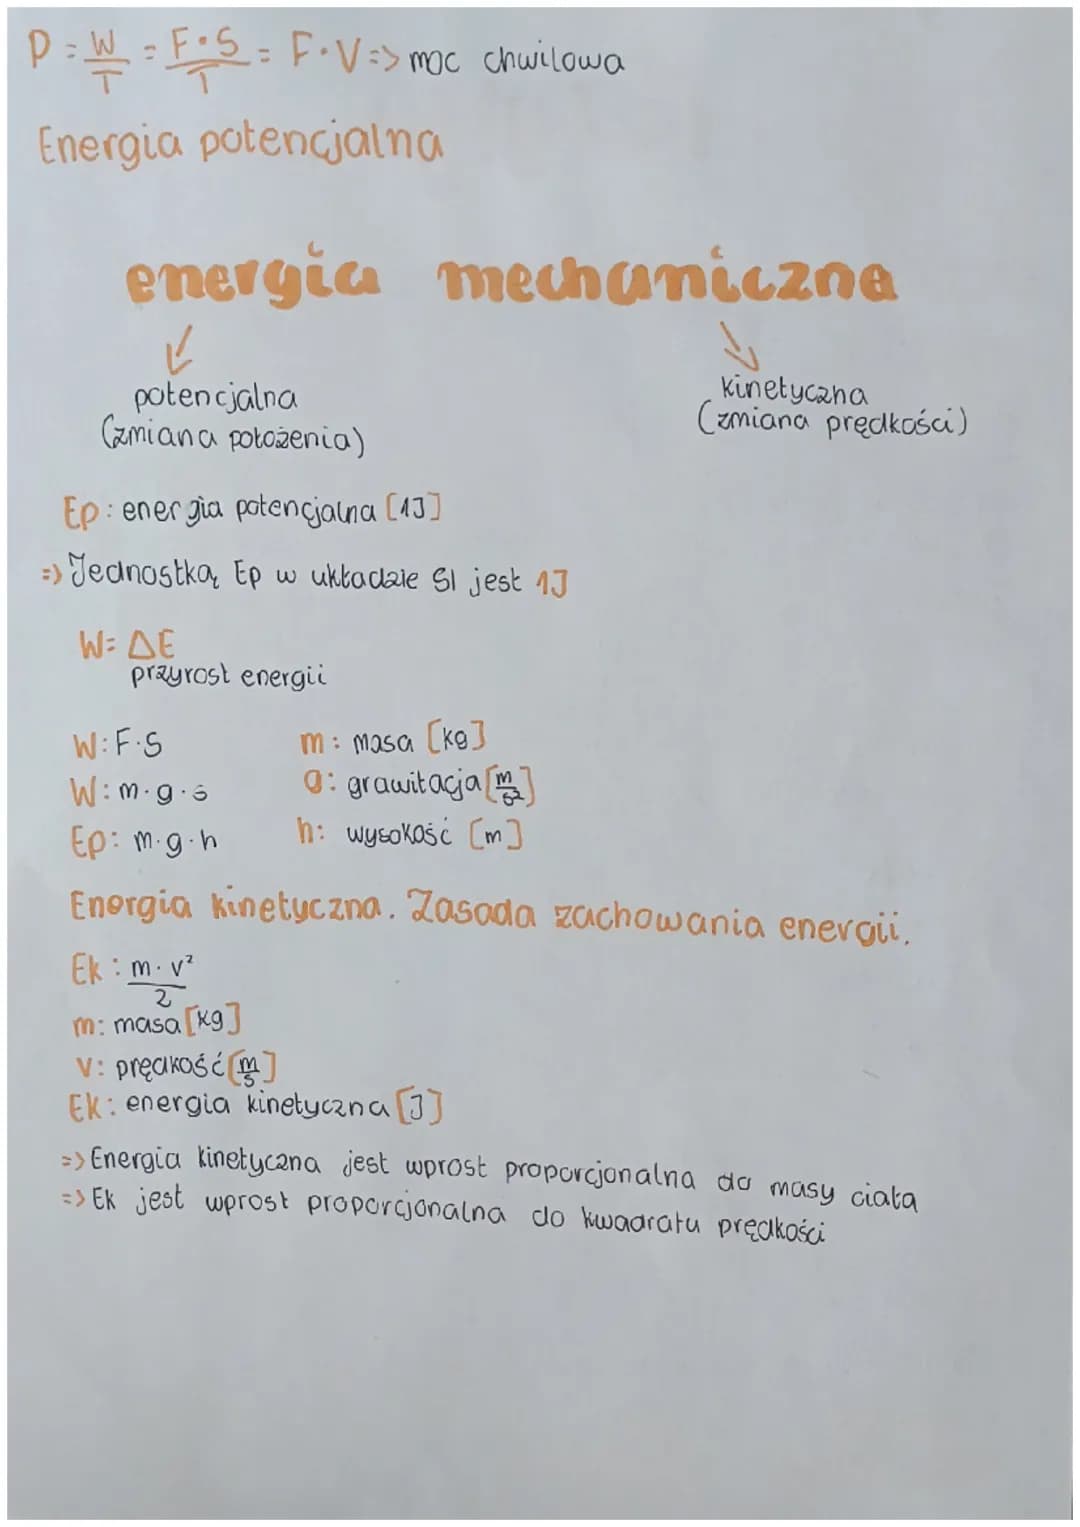 P = W/T = F·S/T = F·V => moc chwilowa
Energia potencjalna
energia mechaniczna
potencjalna
(zmiana położenia)
kinetyczna
(zmiana prędkości)
Ep: energia potencjalna [1J]
=> Jednostką Ep w układzie SI jest 1J
W= ΔE
przyrost energii
W: F·S
W: m·g·s
Ep: m·g·h
m: masa [kg]
g: grawitacja [m/s²]
h: wysokość [m]
Energia kinetyczna. Zasada zachowania energii.
Ek: m·v²/2
m: masa [kg]
v: prędkość [m/s]
Ek: energia kinetyczna [J]
=> Energia kinetyczna jest wprost proporcjonalna do masy ciała
=> Ek jest wprost proporcjonalna do kwadratu prędkości